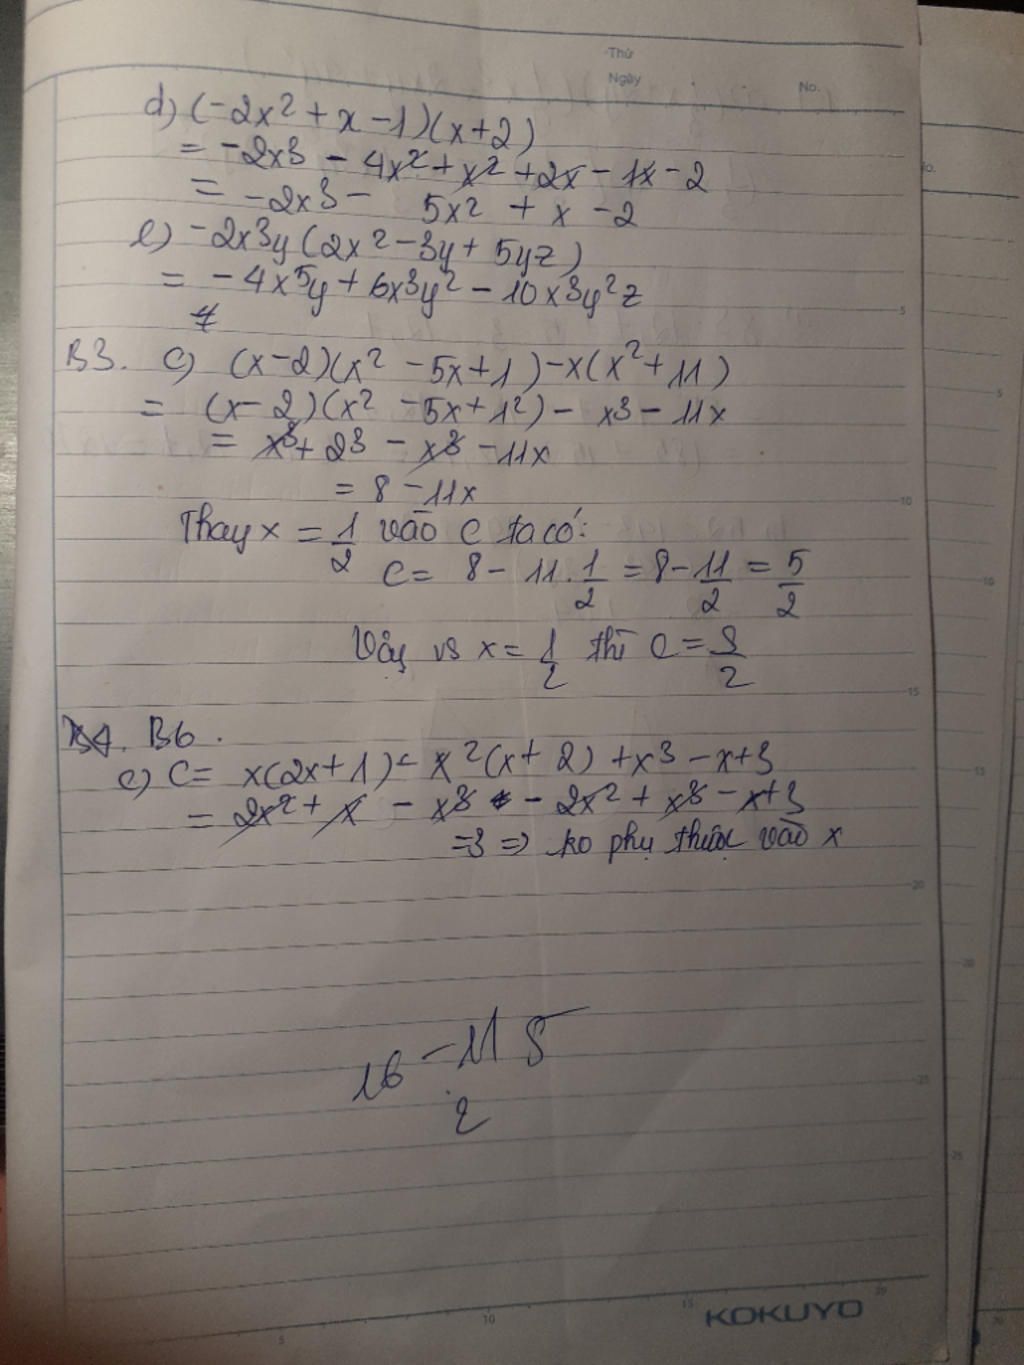 Thứ
Ngày
No.
d) (-2x² + x - 1)(x+2)
= -2x³ - 4x² + x² + 2x - 1x - 2
= -2x³ - 5x² + x - 2
e) -2x³y (2x² - 3y + 5yz)
= -4x⁵y + 6x³y² - 10x³y²z
B3. C) (x-2)(x² - 5x + 1) - x(x² + 11)
= (x-2)(x² - 5x + 1²) - x³ - 11x
= x³ + 2³ - x³ - 11x
= 8 - 11x
Thay x = 1/2 vào C ta có:
C = 8 - 11.1/2 = 8 - 11/2 = 5/2
Vậy vs x = 1/2 thì C =
B6.
c) C = x(2x+1) - x²(x+2) + x³ - x + 3
= 2x² + x - x³ - 2x² + x³ - x + 3
= 3 => ko phụ thuộc vào x
16 - 11 5
2
5
10
15
20
25
5
10
15
20
KOKUYO